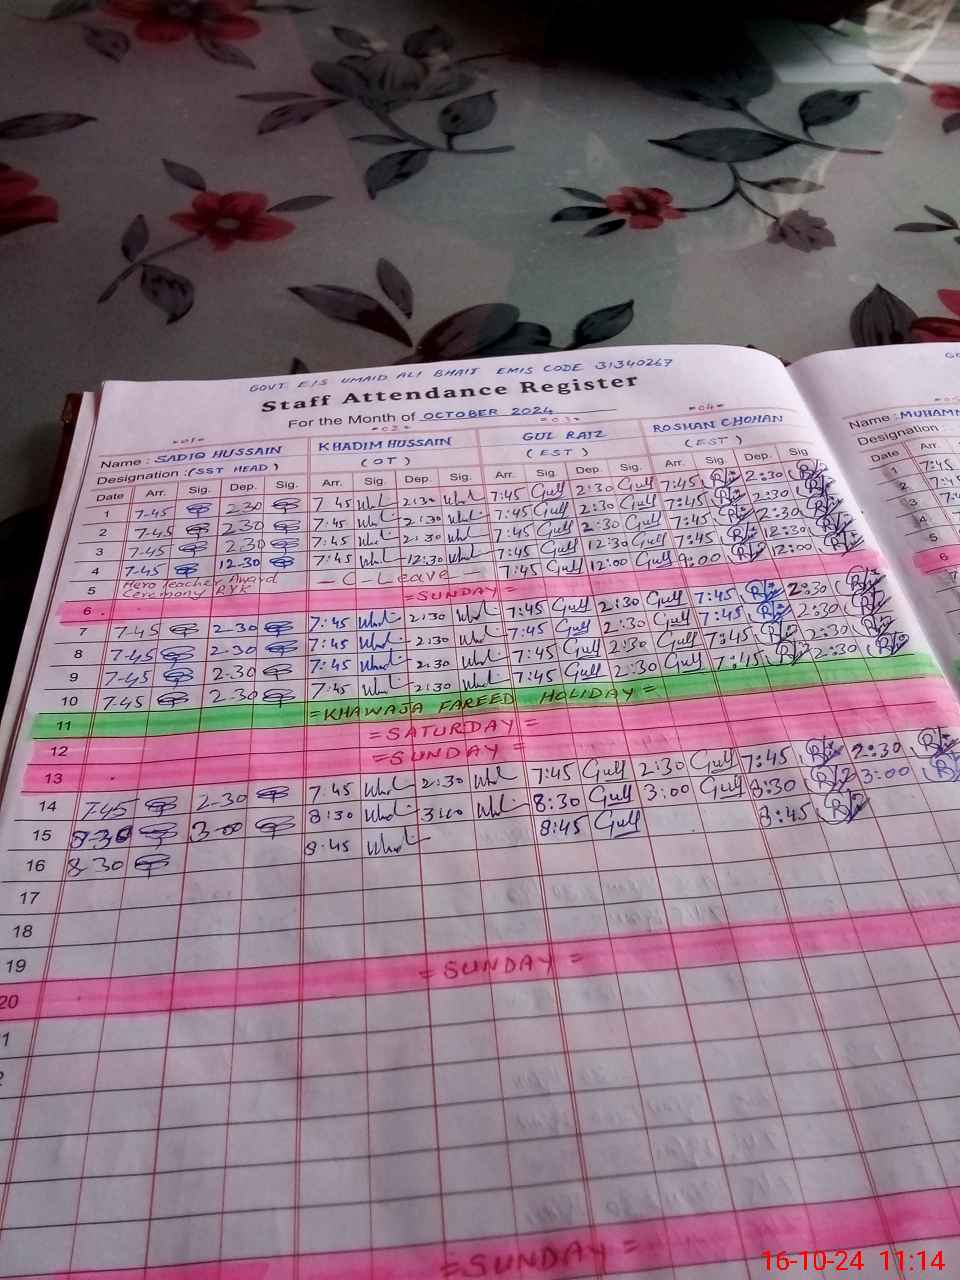 GOVT. E/S UMAID ALI BHAIT EMIS CODE 31340267
Staff Attendance Register
For the Month of OCTOBER 2024
=01= =02= =03= =04=
Name : SADIQ HUSSAIN KHADIM HUSSAIN GUL RAIZ ROSHAN CHOHAN Name : MUHAMM
Designation : (SST HEAD) (OT) (EST) (EST) Designation :
Date Arr. Sig. Dep. Sig. Arr. Sig. Dep. Sig. Arr. Sig. Dep. Sig. Arr. Sig. Dep. Sig Date Arr.
1 7-45 2.30 7:45 2:30 7:45 Gull 2:30 Gull 7:45 2:30 1 7:45
2 7-45 2-30 7:45 2:30 7:45 Gull 2:30 Gull 7:45 2:30 2
3 7-45 2.30 7:45 2:30 7:45 Gull 2:30 Gull 7:45 2:30 3
4 7-45 12-30 7:45 12:30 7:45 Gull 12:30 Gull 7:45 12:30 4
5 Hero Teacher Award Ceremony RYK - C - Leave - 7:45 Gull 12:00 Gull 9:00 12:00 5
6 =SUNDAY= 6
7 7-45 2-30 7:45 2:30 7:45 Gull 2:30 Gull 7:45 2:30
8 7-45 2-30 7:45 2:30 7:45 Gull 2:30 Gull 7:45 2:30
9 7-45 2-30 7:45 2:30 7:45 Gull 2:30 Gull 7:45 2:30
10 7-45 2-30 7:45 2:30 7:45 Gull 2:30 Gull 7:45 2:30
11 =KHAWAJA FAREED HOLIDAY=
12 =SATURDAY=
13 =SUNDAY=
14 7-45 2-30 7:45 2:30 7:45 Gull 2:30 Gull 7:45 2:30
15 8-30 3-00 8:30 3:00 8:30 Gull 3:00 Gull 8:30 3:00
16 8-30 8:45 8:45 Gull 8:45
17
18
19
20 =SUNDAY=
=SUNDAY=
16-10-24 11:14